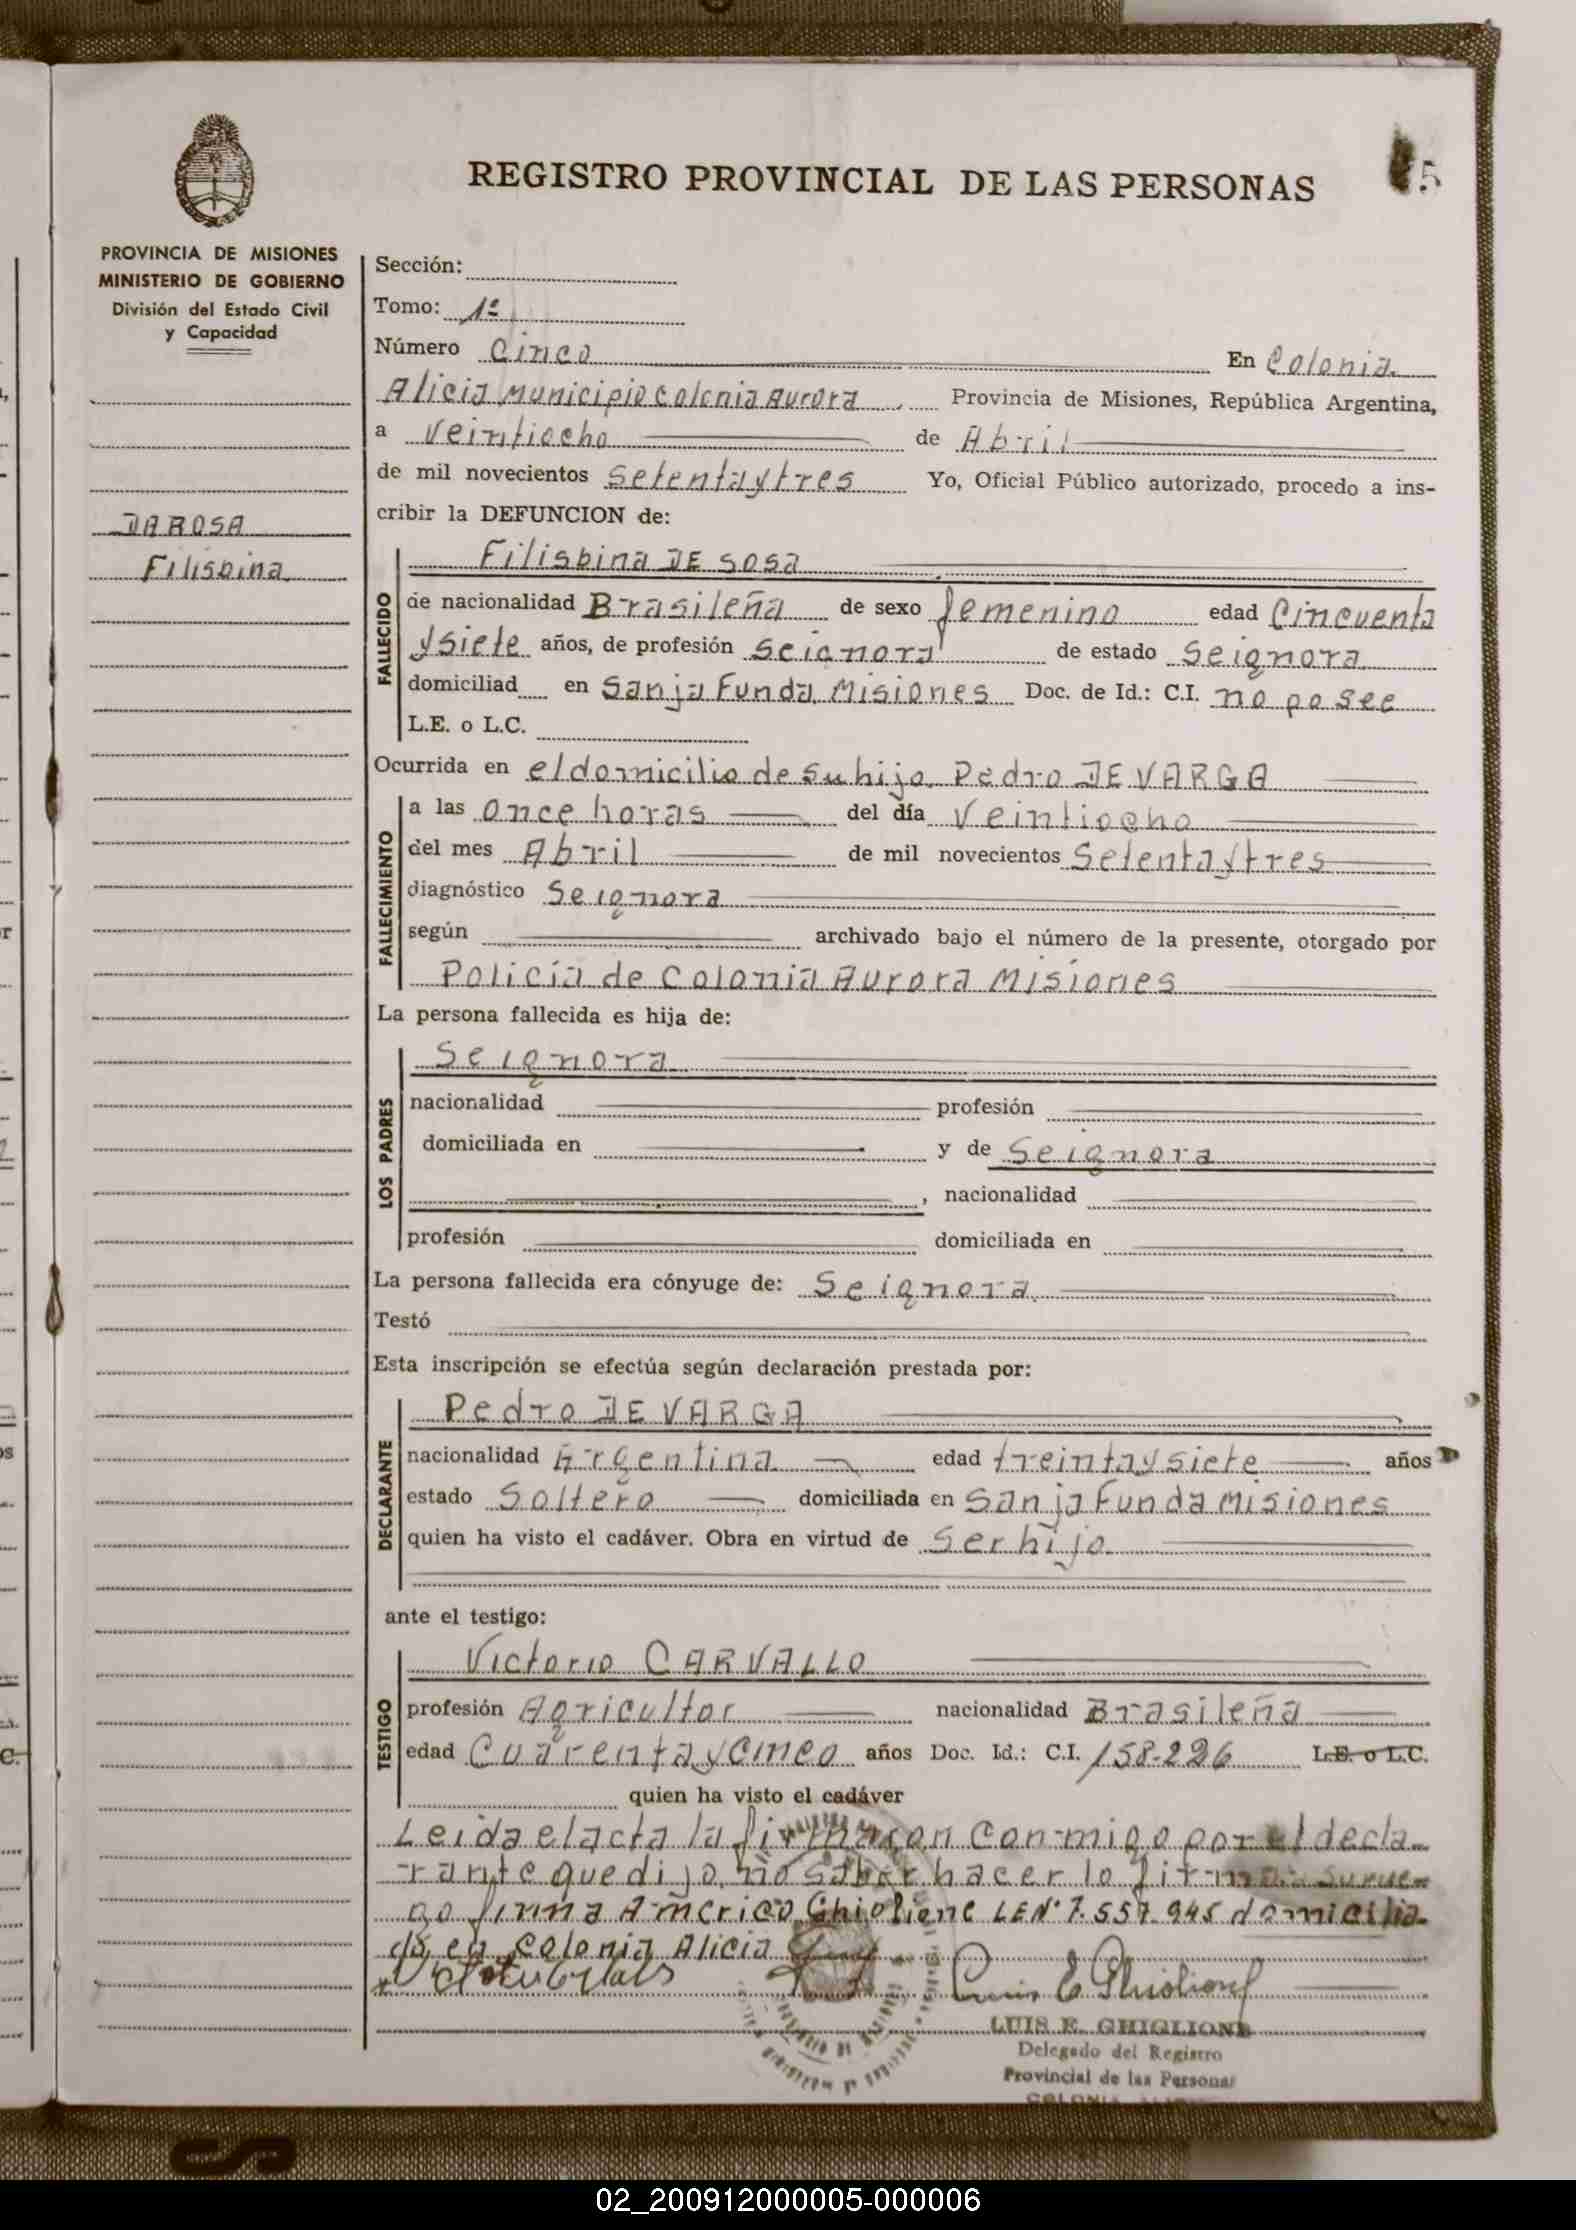 REGISTRO PROVINCIAL DE LAS PERSONAS
5
PROVINCIA DE MISIONES
MINISTERIO DE GOBIERNO
División del Estado Civil
y Capacidad
DAROSA
Filisbina
Sección:
Tomo: 1º
Número Cinco En Colonia
Alicia Municipio Colonia Aurora Provincia de Misiones, República Argentina,
a Veintiocho de Abril
de mil novecientos Setentaytres Yo, Oficial Público autorizado, procedo a ins-
cribir la DEFUNCION de:
FALLECIDO
Filisbina DE SOSA
de nacionalidad Brasileña de sexo femenino edad Cincuenta
ysiete años, de profesión Seignora de estado Seignora
domiciliad en Sanja Funda Misiones Doc. de Id.: C.I. no posee
L.E. o L.C.
Ocurrida en el domicilio de su hijo Pedro DE VARGA
FALLECIMIENTO
a las once horas del día Veintiocho
del mes Abril de mil novecientos Setentaytres
diagnóstico Seignora
según archivado bajo el número de la presente, otorgado por
Policía de Colonia Aurora Misiones
La persona fallecida es hija de:
LOS PADRES
Seignora
nacionalidad profesión
domiciliada en y de Seignora
, nacionalidad
profesión domiciliada en
La persona fallecida era cónyuge de: Seignora
Testó
Esta inscripción se efectúa según declaración prestada por:
DECLARANTE
Pedro DE VARGA
nacionalidad Argentina edad treintaysiete años
estado Soltero domiciliada en Sanja Funda Misiones
quien ha visto el cadáver. Obra en virtud de Ser hijo
ante el testigo:
TESTIGO
Victorio CARVALLO
profesión Agricultor nacionalidad Brasileña
edad Cuarentaycinco años Doc. Id.: C.I. 158-226 L.E. o L.C.
quien ha visto el cadáver
Leida el acta la firmaron conmigo por el decla
rante que dijo no saber hacer lo firma su rue
go firma Americo Ghiolione LEN° 7.557.945 domicilia
do en Colonia Alicia
Luis E Ghiglione
LUIS E. GHIGLIONE
Delegado del Registro
Provincial de las Personas
COLONIA
02_200912000005-000006